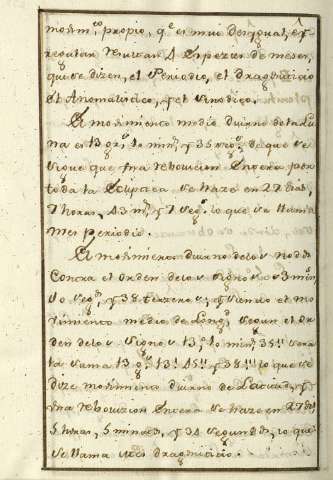 movim.to propio, q.e es mui desigual, y
resultan
que se dizen, el Periodico, el dragoniticio
el Anomalistico, y el sinodico.
El movimiento medio diurno de la Lu
na es 13 gr.s 10 min.s y 35 seg.s de que se
sigue que una revolucion Entera por
toda la Ecliptica se haze en 27 dias,
7 horas, 43 m.s y 7 seg.s lo que se llama
mes periodico.
El movimiento diurno de los nodos
Contra el Orden de los signos es 3 min.s
10 seg.s y 38 terzeros, y siendo el mo
vimiento medio de Long.d segun el Or
den de los signos 13.g 10 min.s 35.ss sera
la suma 13 g.s 13.' 45.'' y 38.''' lo que se
dize movimiento diurno de Latitud, y
una revoluzion Entera se haze en 27 d.s
5 horas, 5 minutos, y 34 segundos, lo que
se llama mes dragoniticio.